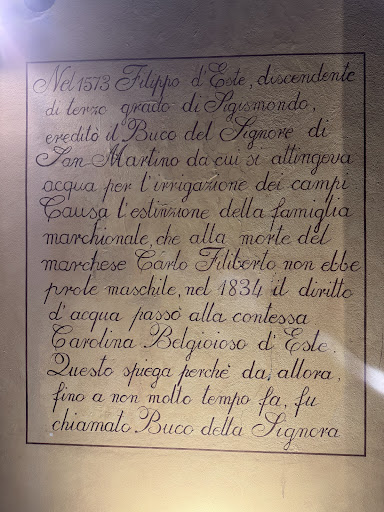 Nel 1573 Filippo d'Este, discendente
di terzo grado di Sigismondo,
ereditò il Buco del Signore di
San Martino da cui si attingeva
acqua per l'irrigazione dei campi
Causa l'estinzione della famiglia
marchionale, che alla morte del
marchese Carlo Filiberto non ebbe
prole maschile, nel 1834 il diritto
d'acqua passò alla contessa
Carolina Belgioioso d'Este.
Questo spiega perchè da allora,
fino a non molto tempo fa, fu
chiamato Buco della Signora